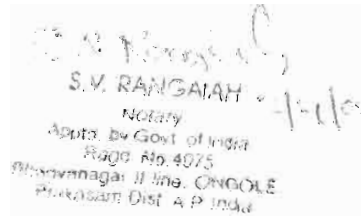 S.V. RANGAIAH
Notary
Apptd. by Govt of India
Regd. No.4075
Bhagyanagar II line, ONGOLE
Prakasam Dist A P India